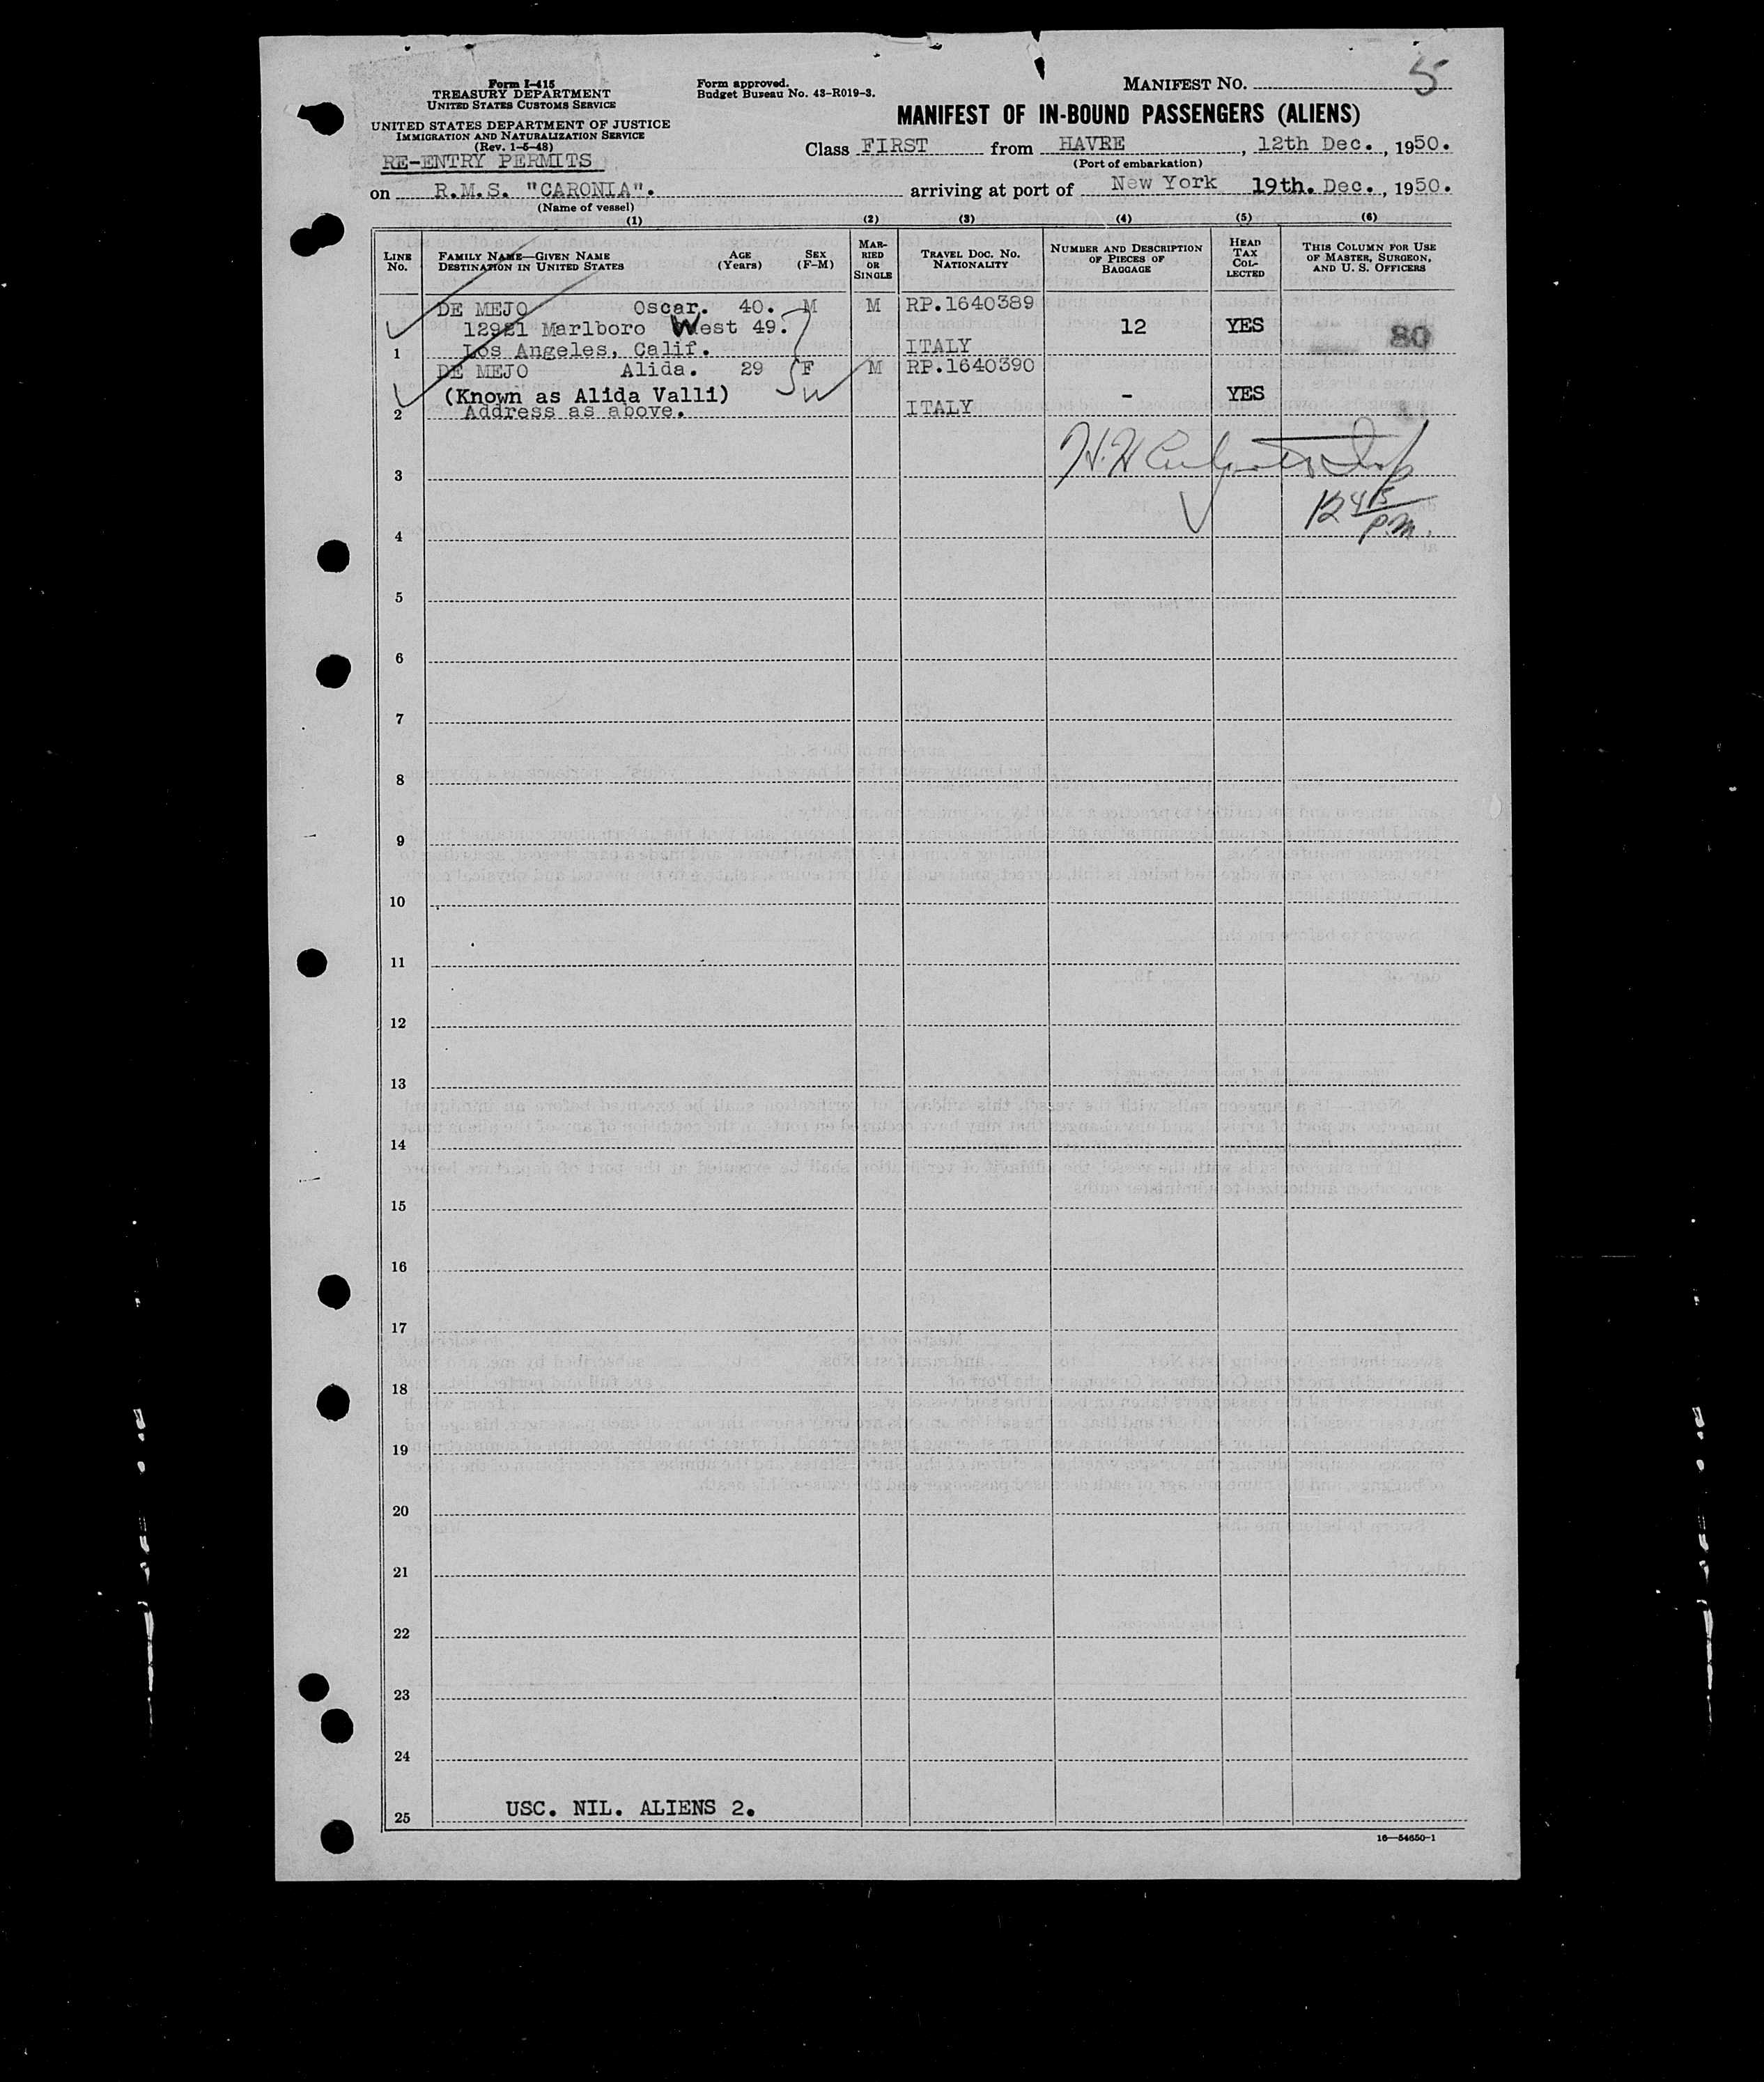 Form I-415
TREASURY DEPARTMENT
UNITED STATES CUSTOMS SERVICE
UNITED STATES DEPARTMENT OF JUSTICE
IMMIGRATION AND NATURALIZATION SERVICE
(Rev. 1-5-48)
RE-ENTRY PERMITS
Form approved.
Budget Bureau No. 43-R019-3.
MANIFEST NO. 5
MANIFEST OF IN-BOUND PASSENGERS (ALIENS)
Class FIRST from HAVRE, 12th Dec., 1950.
(Port of embarkation)
on R.M.S. "CARONIA". arriving at port of New York 19th. Dec., 1950.
(Name of vessel)
(1) (2) (3) (4) (5) (6)
LINE NO.
FAMILY NAME—GIVEN NAME
DESTINATION IN UNITED STATES
AGE (Years)
SEX (F-M)
MARRIED OR SINGLE
TRAVEL DOC. NO. NATIONALITY
NUMBER AND DESCRIPTION OF PIECES OF BAGGAGE
HEAD TAX COLLECTED
THIS COLUMN FOR USE OF MASTER, SURGEON, AND U. S. OFFICERS
DE MEJO Oscar. 40. M M RP.1640389
12921 Marlboro West 49. 12 YES 80
1 Los Angeles, Calif. ITALY
DE MEJO Alida. 29 F M RP.1640390
(Known as Alida Valli) W - YES
2 Address as above. ITALY
3
12 45 P.M.
4
5
6
7
8
9
10
11
12
13
14
15
16
17
18
19
20
21
22
23
24
25 USC. NIL. ALIENS 2.
16—54650-1